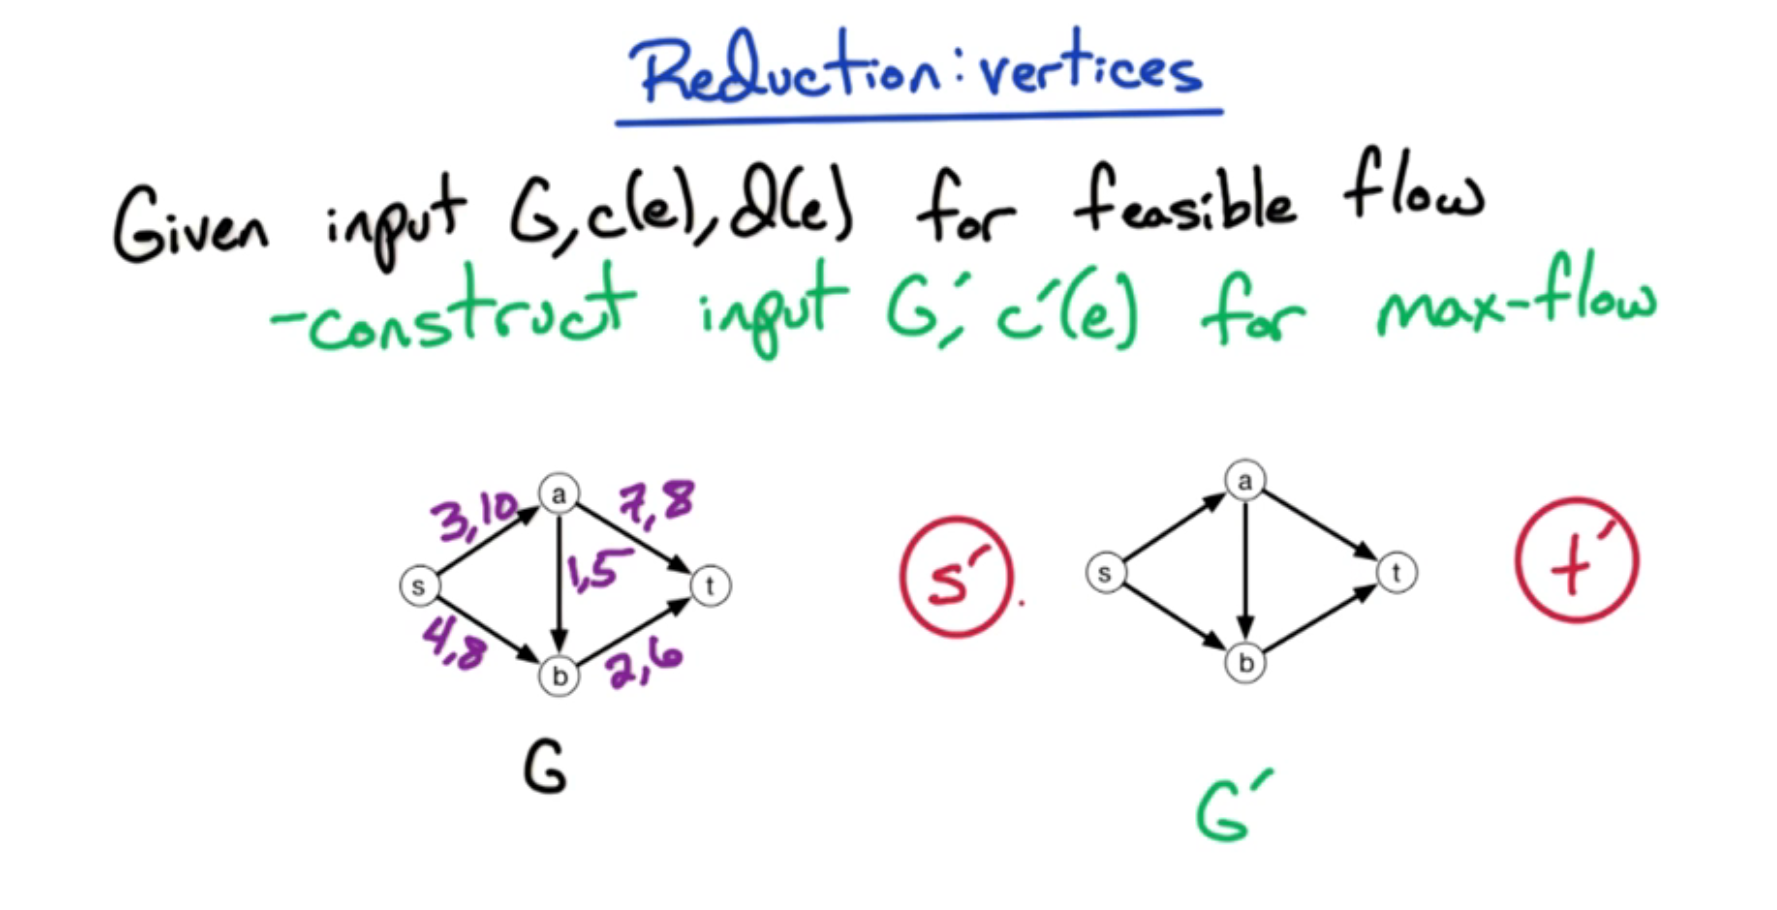 Reduction: vertices
Given input G, c(e), d(e) for feasible flow
-construct input G′, c′(e) for max-flow
a
3,10
7,8
s
1,5
t
4,8
b
2,6
G
s′
a
s
t
b
t′
G′